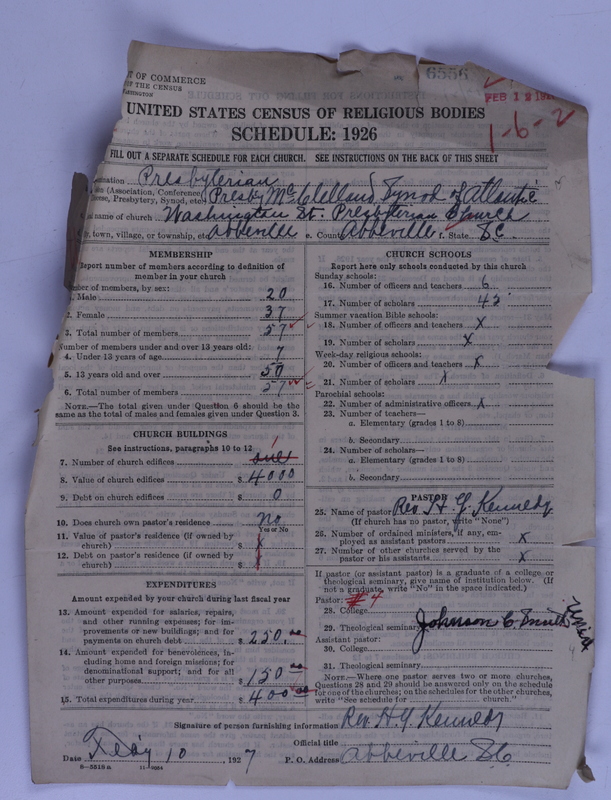 T OF COMMERCE
OF THE CENSUS
WASHINGTON
6556
FEB 12 192
1-6-2
UNITED STATES CENSUS OF RELIGIOUS BODIES
SCHEDULE: 1926
FILL OUT A SEPARATE SCHEDULE FOR EACH CHURCH. SEE INSTRUCTIONS ON THE BACK OF THIS SHEET
nomination Presbyterian
(Association, Conference, Presby McClelland Synod of Atlantic
Diocese, Presbytery, Synod, etc.)
name of church Washington St. Presbyterian Church
town, village, or township, etc. Abbeville e. County Abbeville f. State S.C.
MEMBERSHIP
Report number of members according to definition of
member in your church
Number of members, by sex:
1. Male 20
2. Female 37
3. Total number of members 57
Number of members under and over 13 years old:
4. Under 13 years of age 7
5. 13 years old and over 50
6. Total number of members 57
NOTE.—The total given under Question 6 should be the
same as the total of males and females given under Question 3.
CHURCH BUILDINGS
See instructions, paragraphs 10 to 12
7. Number of church edifices 1
8. Value of church edifices $ 4000
9. Debt on church edifices $ 0
10. Does church own pastor's residence No
Yes or No
11. Value of pastor's residence (if owned by
church) $ X
12. Debt on pastor's residence (if owned by
church) $
EXPENDITURES
Amount expended by your church during last fiscal year
13. Amount expended for salaries, repairs,
and other running expenses; for im-
provements or new buildings; and for
payments on church debt $ 250.00
14. Amount expended for benevolences, in-
cluding home and foreign missions; for
denominational support; and for all
other purposes $ 150.00
15. Total expenditures during year $ 400.00
CHURCH SCHOOLS
Report here only schools conducted by this church
Sunday schools:
16. Number of officers and teachers 6
17. Number of scholars 42
Summer vacation Bible schools:
18. Number of officers and teachers X
19. Number of scholars X
Week-day religious schools:
20. Number of officers and teachers X
21. Number of scholars X
Parochial schools:
22. Number of administrative officers X
23. Number of teachers—
a. Elementary (grades 1 to 8)
b. Secondary
24. Number of scholars—
a. Elementary (grades 1 to 8)
b. Secondary
PASTOR
25. Name of pastor Rev. H. Y. Kennedy
(If church has no pastor, write "None")
26. Number of ordained ministers, if any, em-
ployed as assistant pastors X
27. Number of other churches served by the
pastor or his assistants X
If pastor (or assistant pastor) is a graduate of a college or
theological seminary, give name of institution below. (If
not a graduate, write "No" in the space indicated.)
Pastor: # 4
28. College
29. Theological seminary Johnson C. Smith
Assistant pastor:
30. College
31. Theological seminary
NOTE.—Where one pastor serves two or more churches,
Questions 28 and 29 should be answered only on the schedule
for one of the churches; on the schedules for the other churches,
write "See schedule for church."
Signature of person furnishing information Rev. H Y Kennedy
Official title
Date Feby 10, 1927 P. O. Address Abbeville S.C.
8—5518 a 11—9984